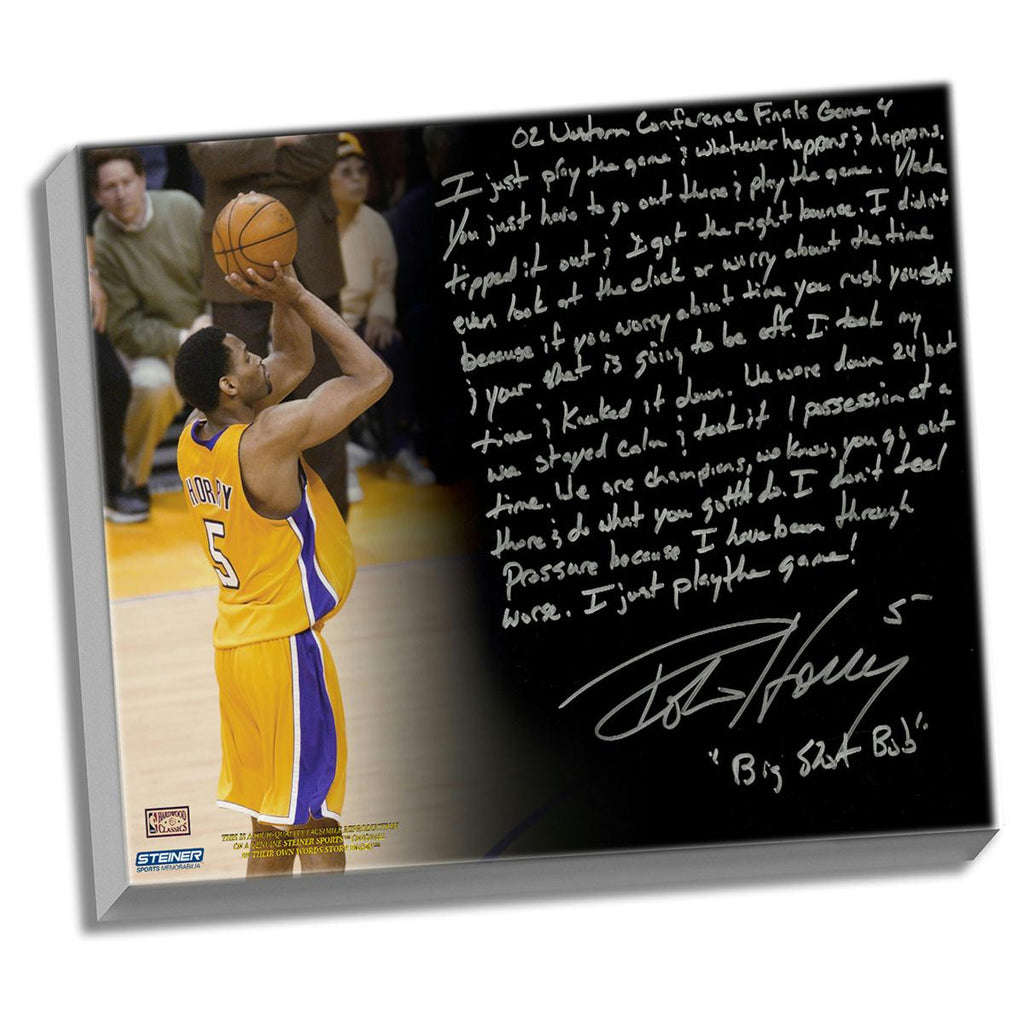 02 Western Conference Finals Game 4
I just play the game & whatever happens & happens.
You just have to go out there & play the game. Vlade
tipped it out & I got the right bounce. I didn't
even look at the clock or worry about the time
because if you worry about time you rush your shot
& your shot is going to be off. I took my
time & knocked it down. We were down 24 but
we stayed calm & took it 1 possession at a
time. We are champions, we know, you go out
there & do what you gotta do. I don't feel
Pressure because I have been through
worse. I just play the game!
Robert Horry 5
"Big Shot Bob"
HORRY
5
HARDWOOD
CLASSICS
STEINER
SPORTS MEMORABILIA
THIS IS A HIGH-QUALITY FACSIMILE REPRODUCTION
OF A GENUINE STEINER SPORTS
IN THEIR OWN WORDS STORY